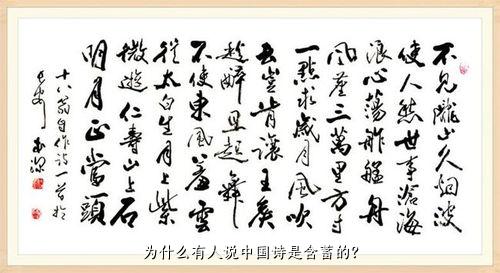 不見隴山久烟波
使人愁世事滄海
浪心蕩舴艋舟
風塵三萬里方寸
一點求歲月風吹
去豈肯讓王侯
趁醉且起舞
不使東風羞雲
從太白生月上紫
微遊仁壽山上石
明月正當頭
自作诗一首於
为什么有人说中国诗是含蓄的?